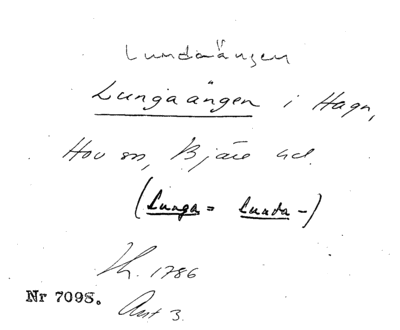 Lundaängen
Lungaängen i Haga,
Hov sn, Bjäre hd.
(Lunga = Lunda-)
1786
Nr 7095.
Akt 3.